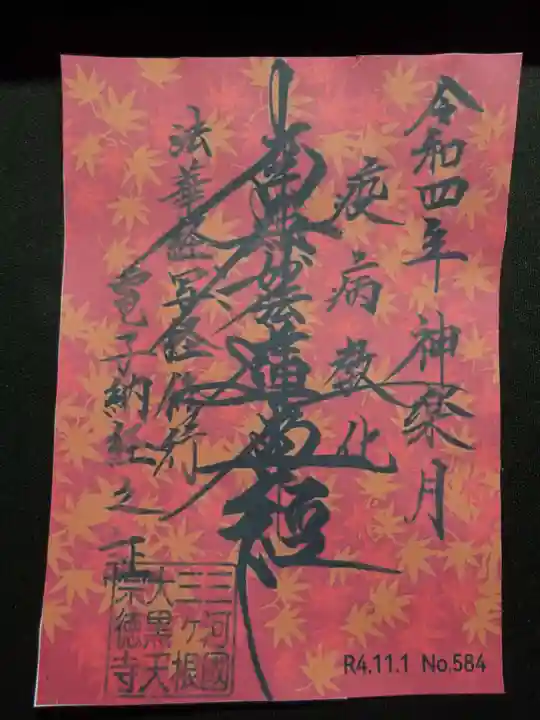 令和四年 神楽月
疫病教化
南無妙法蓮華経
法華経写経修行
電子納経之証
三河國
三ヶ根
大黒天
崇徳寺
R4.11.1 No.584